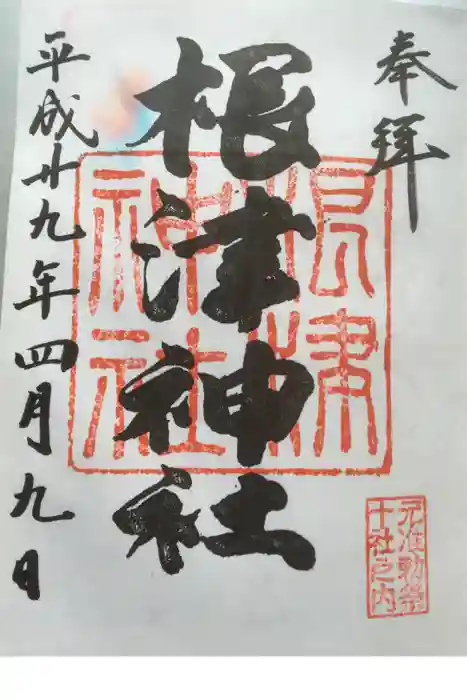 奉拝
根津神社
根津神社
元准勅祭
十社之内
平成廿九年四月九日